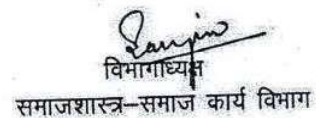 विभागाध्यक्ष
समाजशास्त्र–समाज कार्य विभाग